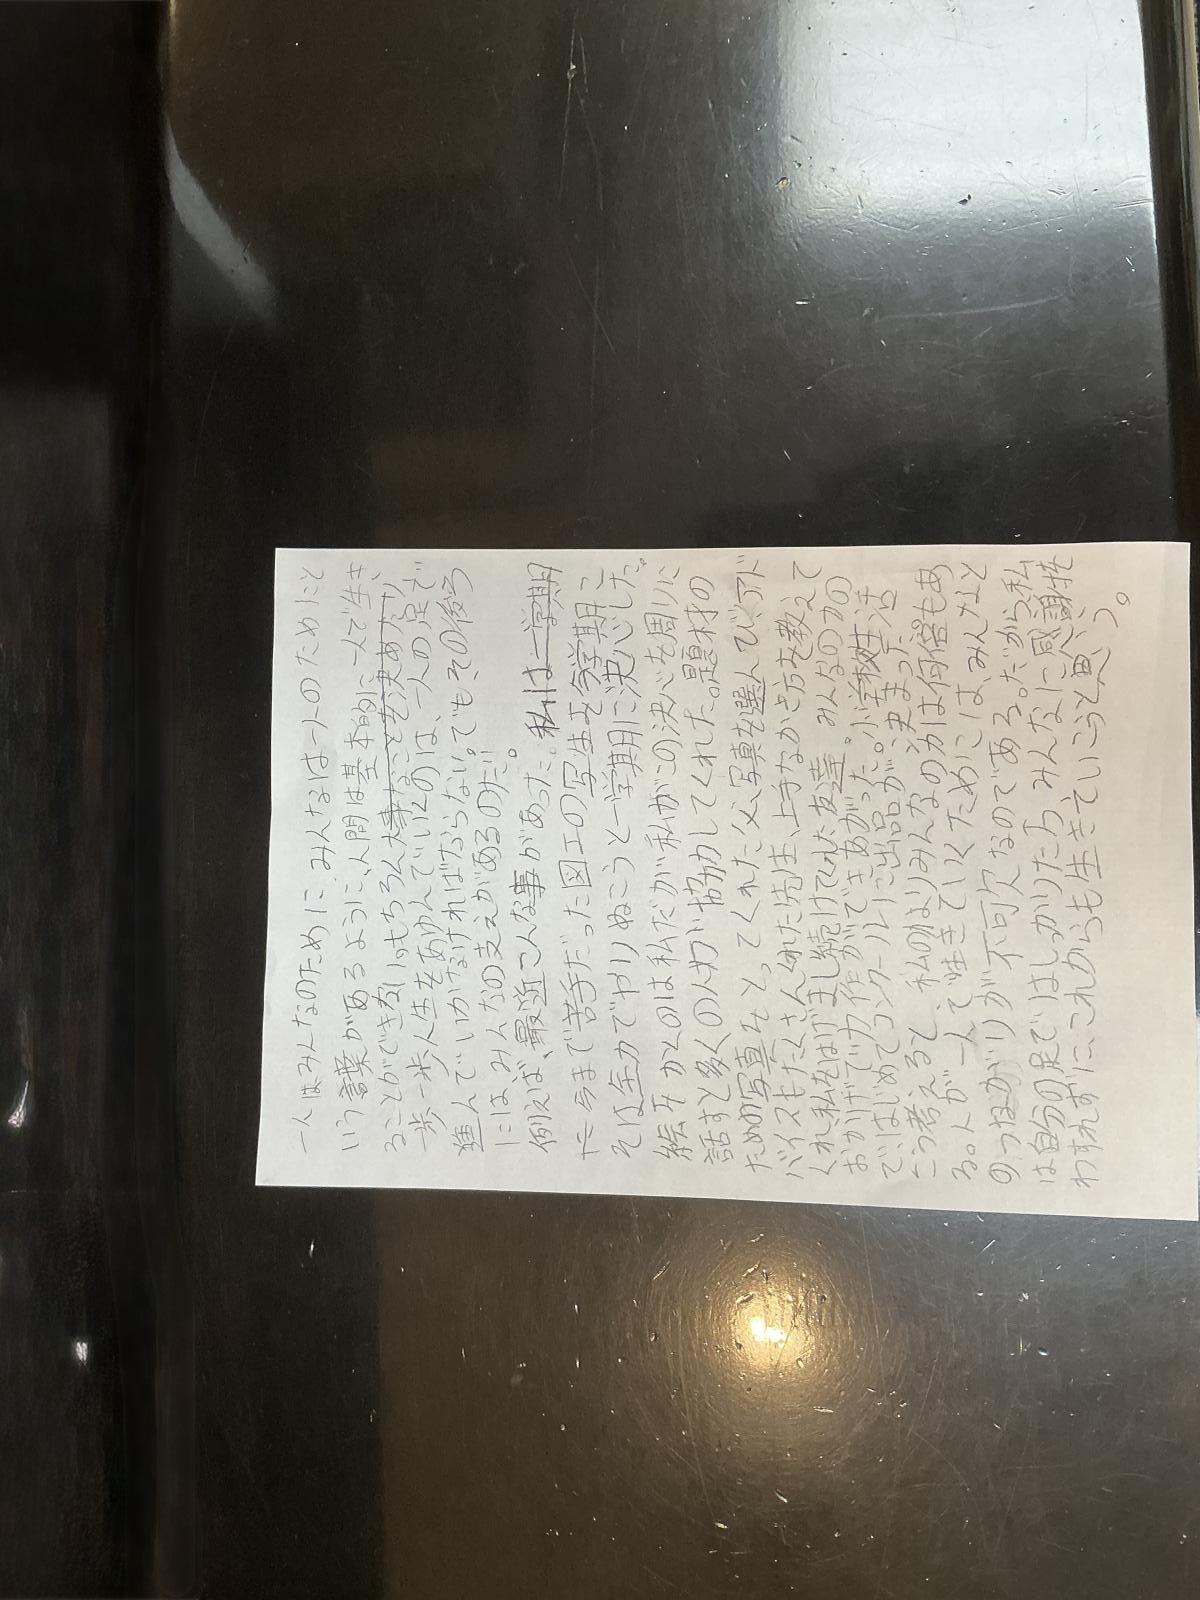 一人はみんなのために、みんなは一人のためにと
いう言葉があるように、人間は基本的に一人で生き
ることができない。もちろん大事なことを決めたり
一歩一歩人生をあゆんでいくのは、一人の足で
進んでいかなければならない。でも、その後ろ
には、みんなの支えがあるのだ。
例えば、最近こんな事があった。私は一学期
だ今まで苦手だった図工の写生を今学期こ
そは全力でやりぬこうと一学期に決心した。
絵をかくのは私だが私がこの決心を周りに
話すと多くの人が協力してくれた。題材の
ための写真をとってくれた父、写真を選んで、アド
バイスもたくさんくれた先生、上手なかき方を教えて
くれ、私をはげまし続けてくれた友達。みんなの力の
おかげで力作ができあがった。小学校生活
ではじめてコンクールに出品が決まった。
こう考えると、私の力よりみんなの力は何倍もあ
る。人が一人で生きていくためには、みんなと
のつながりが不可欠なのである。だから、私
は自分の足ではしっかりたち、みんなに感謝を
わすれずにこれからも生きていこうと思う。